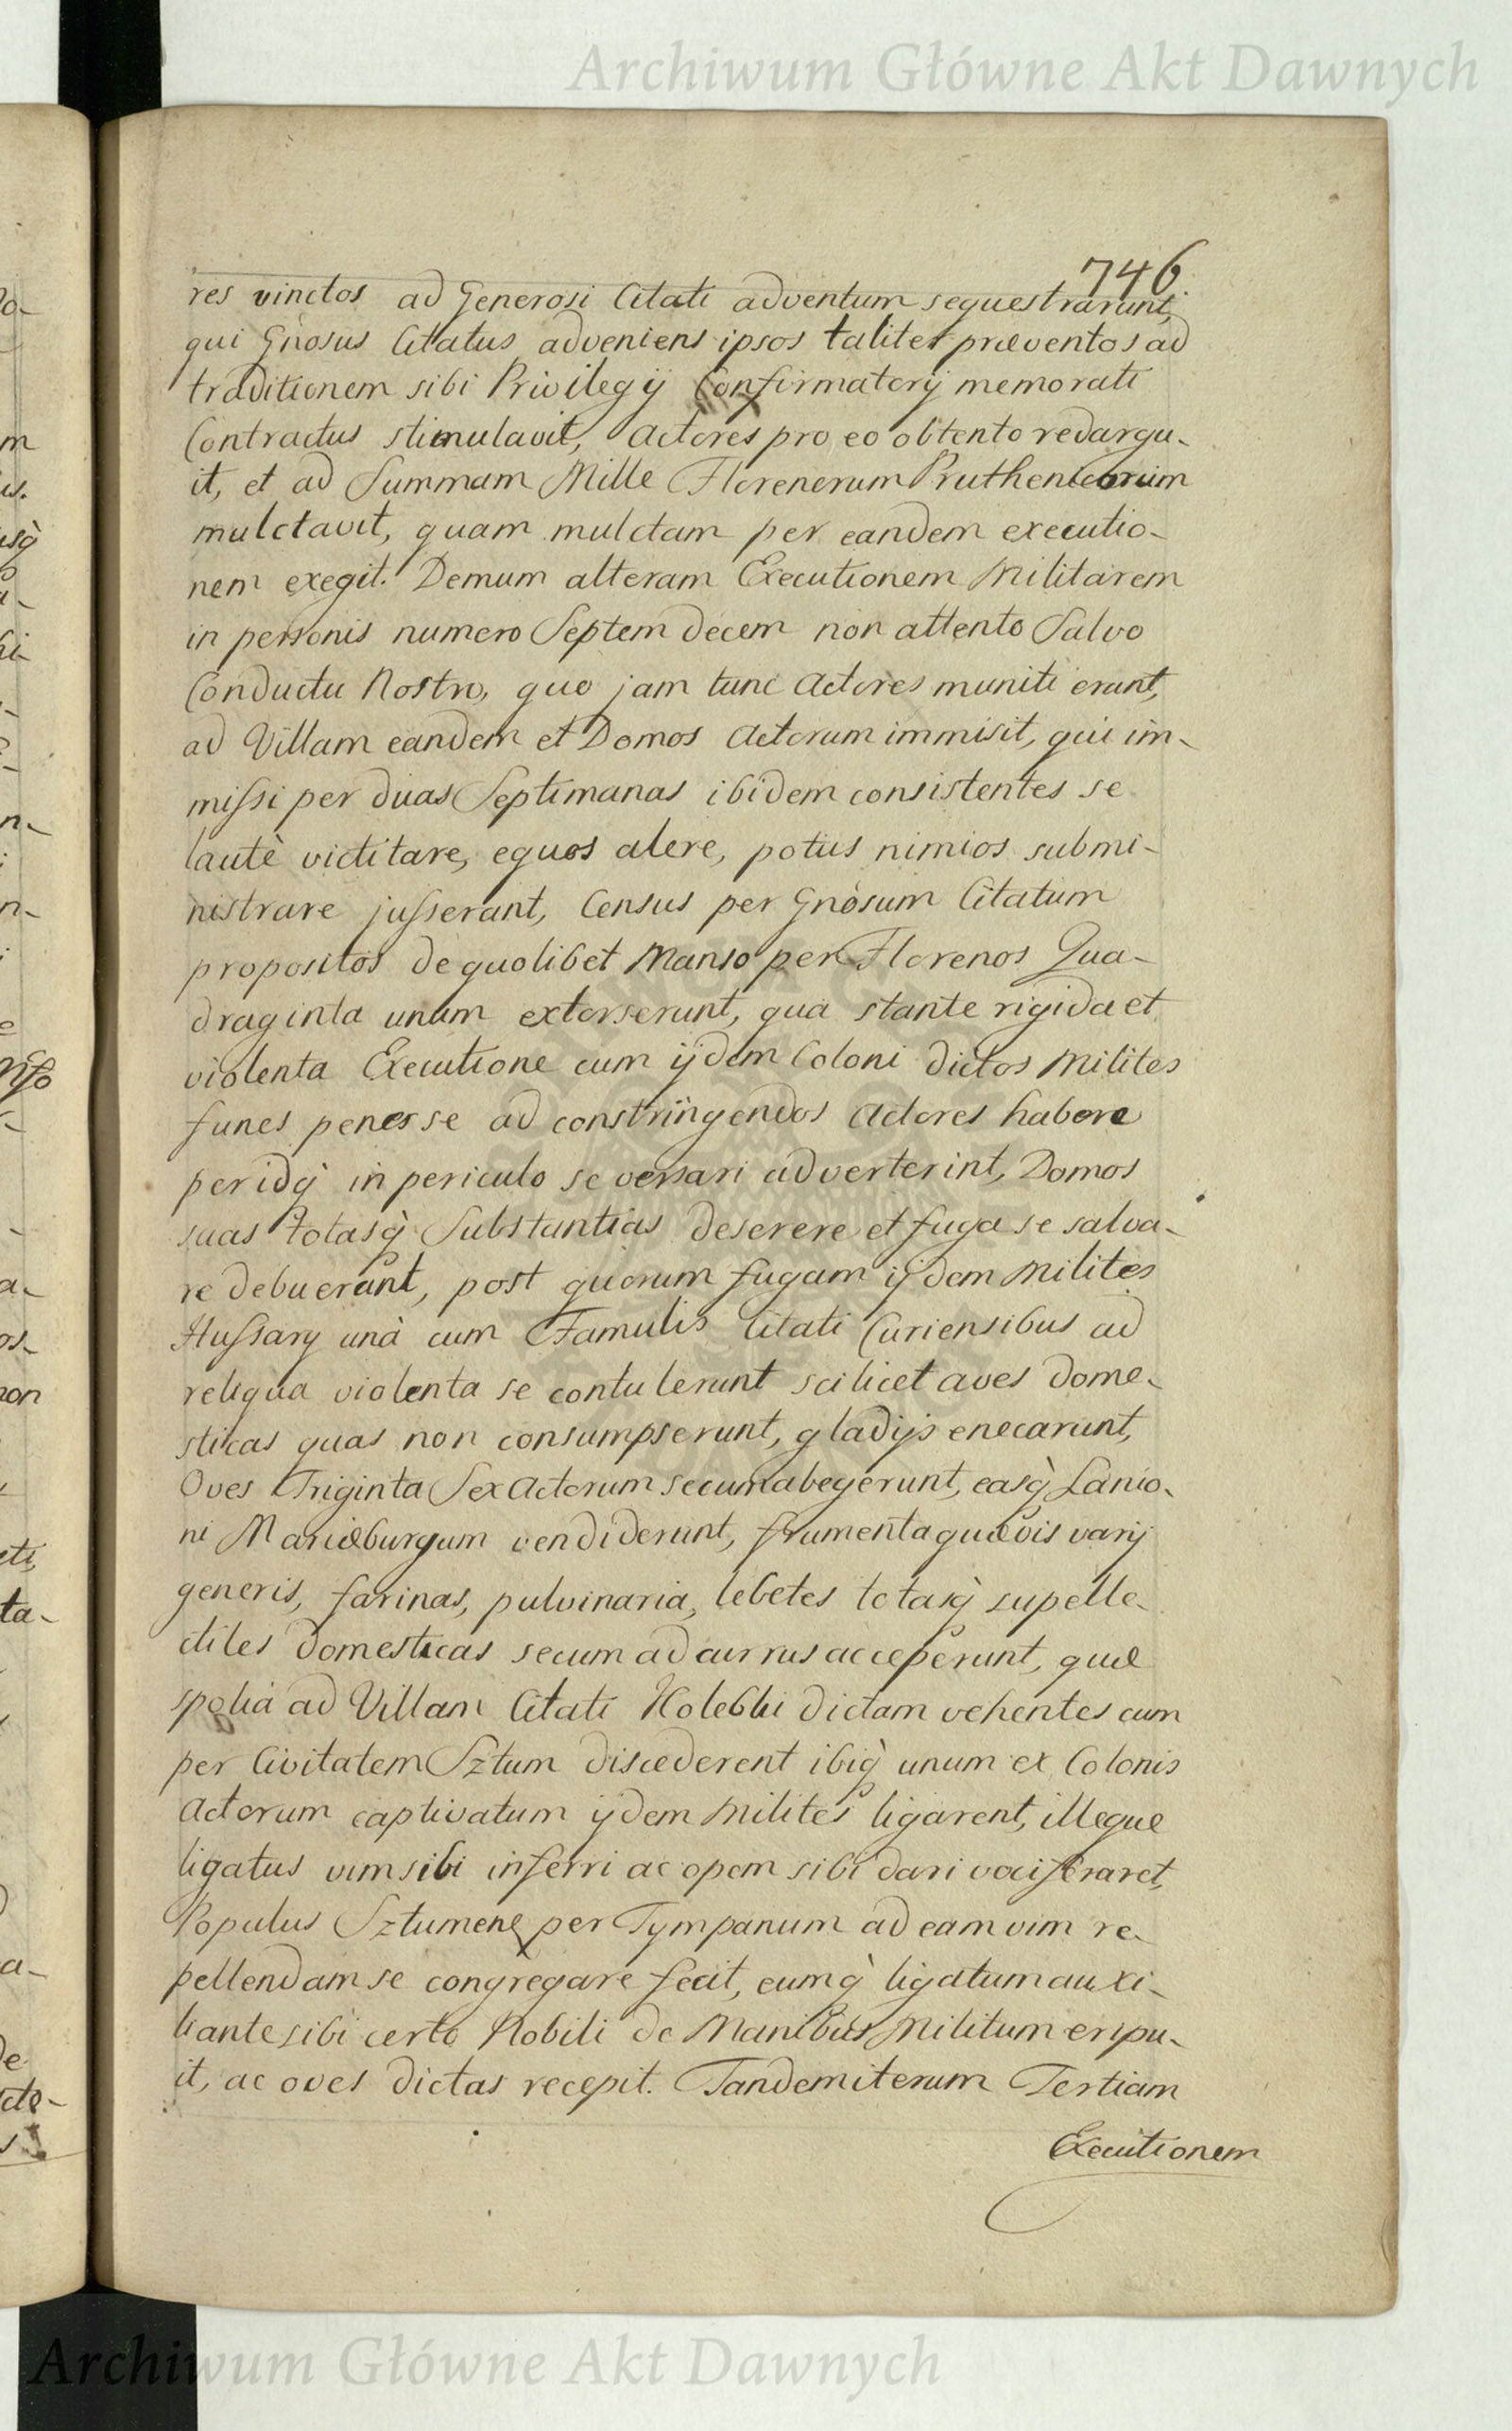 Archiwum Główne Akt Dawnych
746.
res vinctos ad Generosi Citati adventum sequestrarunt,
qui Gnosus Citatus adveniens ipsos taliter præventos ad
traditionem sibi Privilegij Confirmatorij memorati
Contractus stimulavit, Actores pro eo obtento redargu-
it, et ad Summam Mille Florenorum Pruthenicorum
mulctavit, quam mulctam per eandem executio-
nem exegit. Demum alteram Executionem Militarem
in personis numero Septem decem non attento Salvo
Conductu Nostro, quo jam tunc Actores muniti erant,
ad Villam eandem et Domos Actorum immisit, qui im-
missi per duas Septimanas ibidem consistentes se
lautè victitare, equos alere, potus nimios submi-
nistrare jusserant, Census per Gnòsum Citatum
propositos de quolibet Manso per Florenos Qua-
draginta unum extorserunt, qua stante rigida et
violenta Executione cum ijdem Coloni dictos Milites
funes penes se ad constringendos Actores habere
per idq̀ in periculo se versari adverterint, Domos
suas totasq̀ Substantias deserere et fuga se salva-
re debuerant, post quorum fugam ijdem Milites
Hussary unà cum Famulis Citati Curiensibus ad
reliqua violenta se contulerunt scilicet aves dome-
sticas quas non consumpserunt, gladijs enecarunt,
Oves Triginta Sex Actorum secum abegerunt, easq̀ Lanio-
ni Mariæburgum vendiderunt, frumenta quævis varij
generis, farinas, pulvinaria, lebetes totasq̀ supelle-
ctiles domesticas secum ad currus acceperunt, quæ
spolia ad Villam Citati Kolebki dictam vehentes cum
per Civitatem Sztum discederent ibiq̀ unum ex Colonis
Actorum captivatum ijdem Milites ligarent, illeque
ligatus vim sibi inferri ac opem sibi dari vociferaret,
Populus Sztumens per Tympanum ad eam vim re-
pellendam se congregare fecit, eumq̀ ligatum auxi-
liante sibi certo Nobili de Manibus Militum eripu-
it, ac oves dictas recepit. Tandem iterum Tertiam
Executionem
Archiwum Główne Akt Dawnych